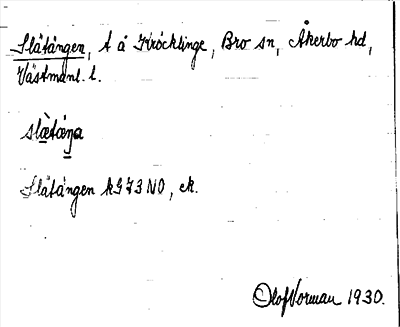 Slåtängen, t å Kröcklinge, Bro sn, Åkerbo hd,
Västmanl. l.
slæ̀tæŋa
Slåtängen kG73NO, ek.
Olof Norman 1930.